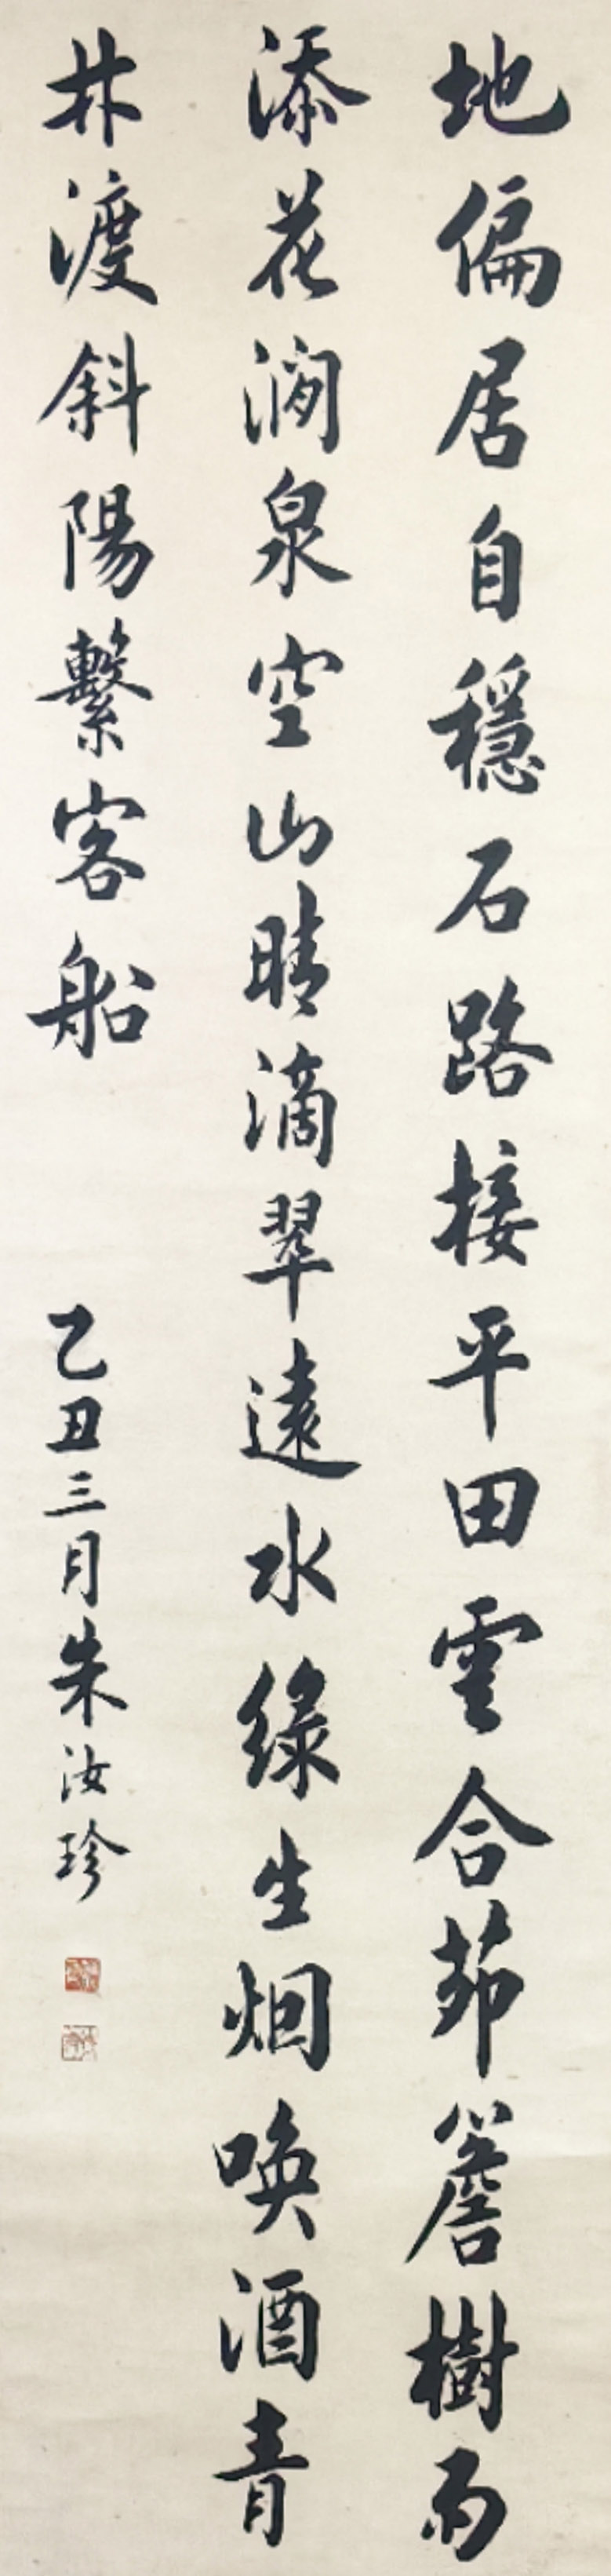 地偏居自穩石路接平田雲合茆簷樹雨
添花澗泉空山晴滴翠遠水綠生烟喚酒青
林渡斜陽繫客船
乙丑三月朱汝珍